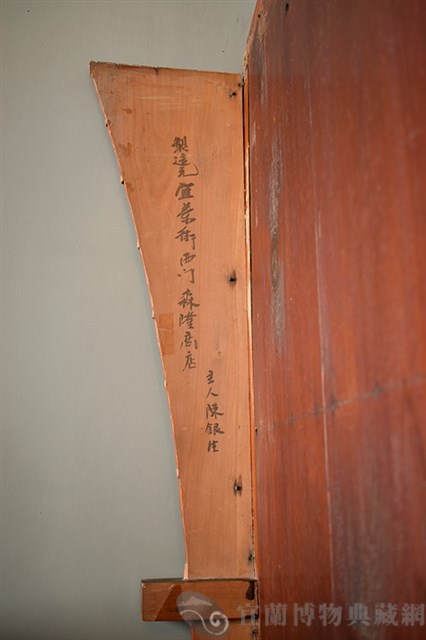 製造元宜蘭街西門森隆商店
主人陳銀生
宜蘭博物典藏網